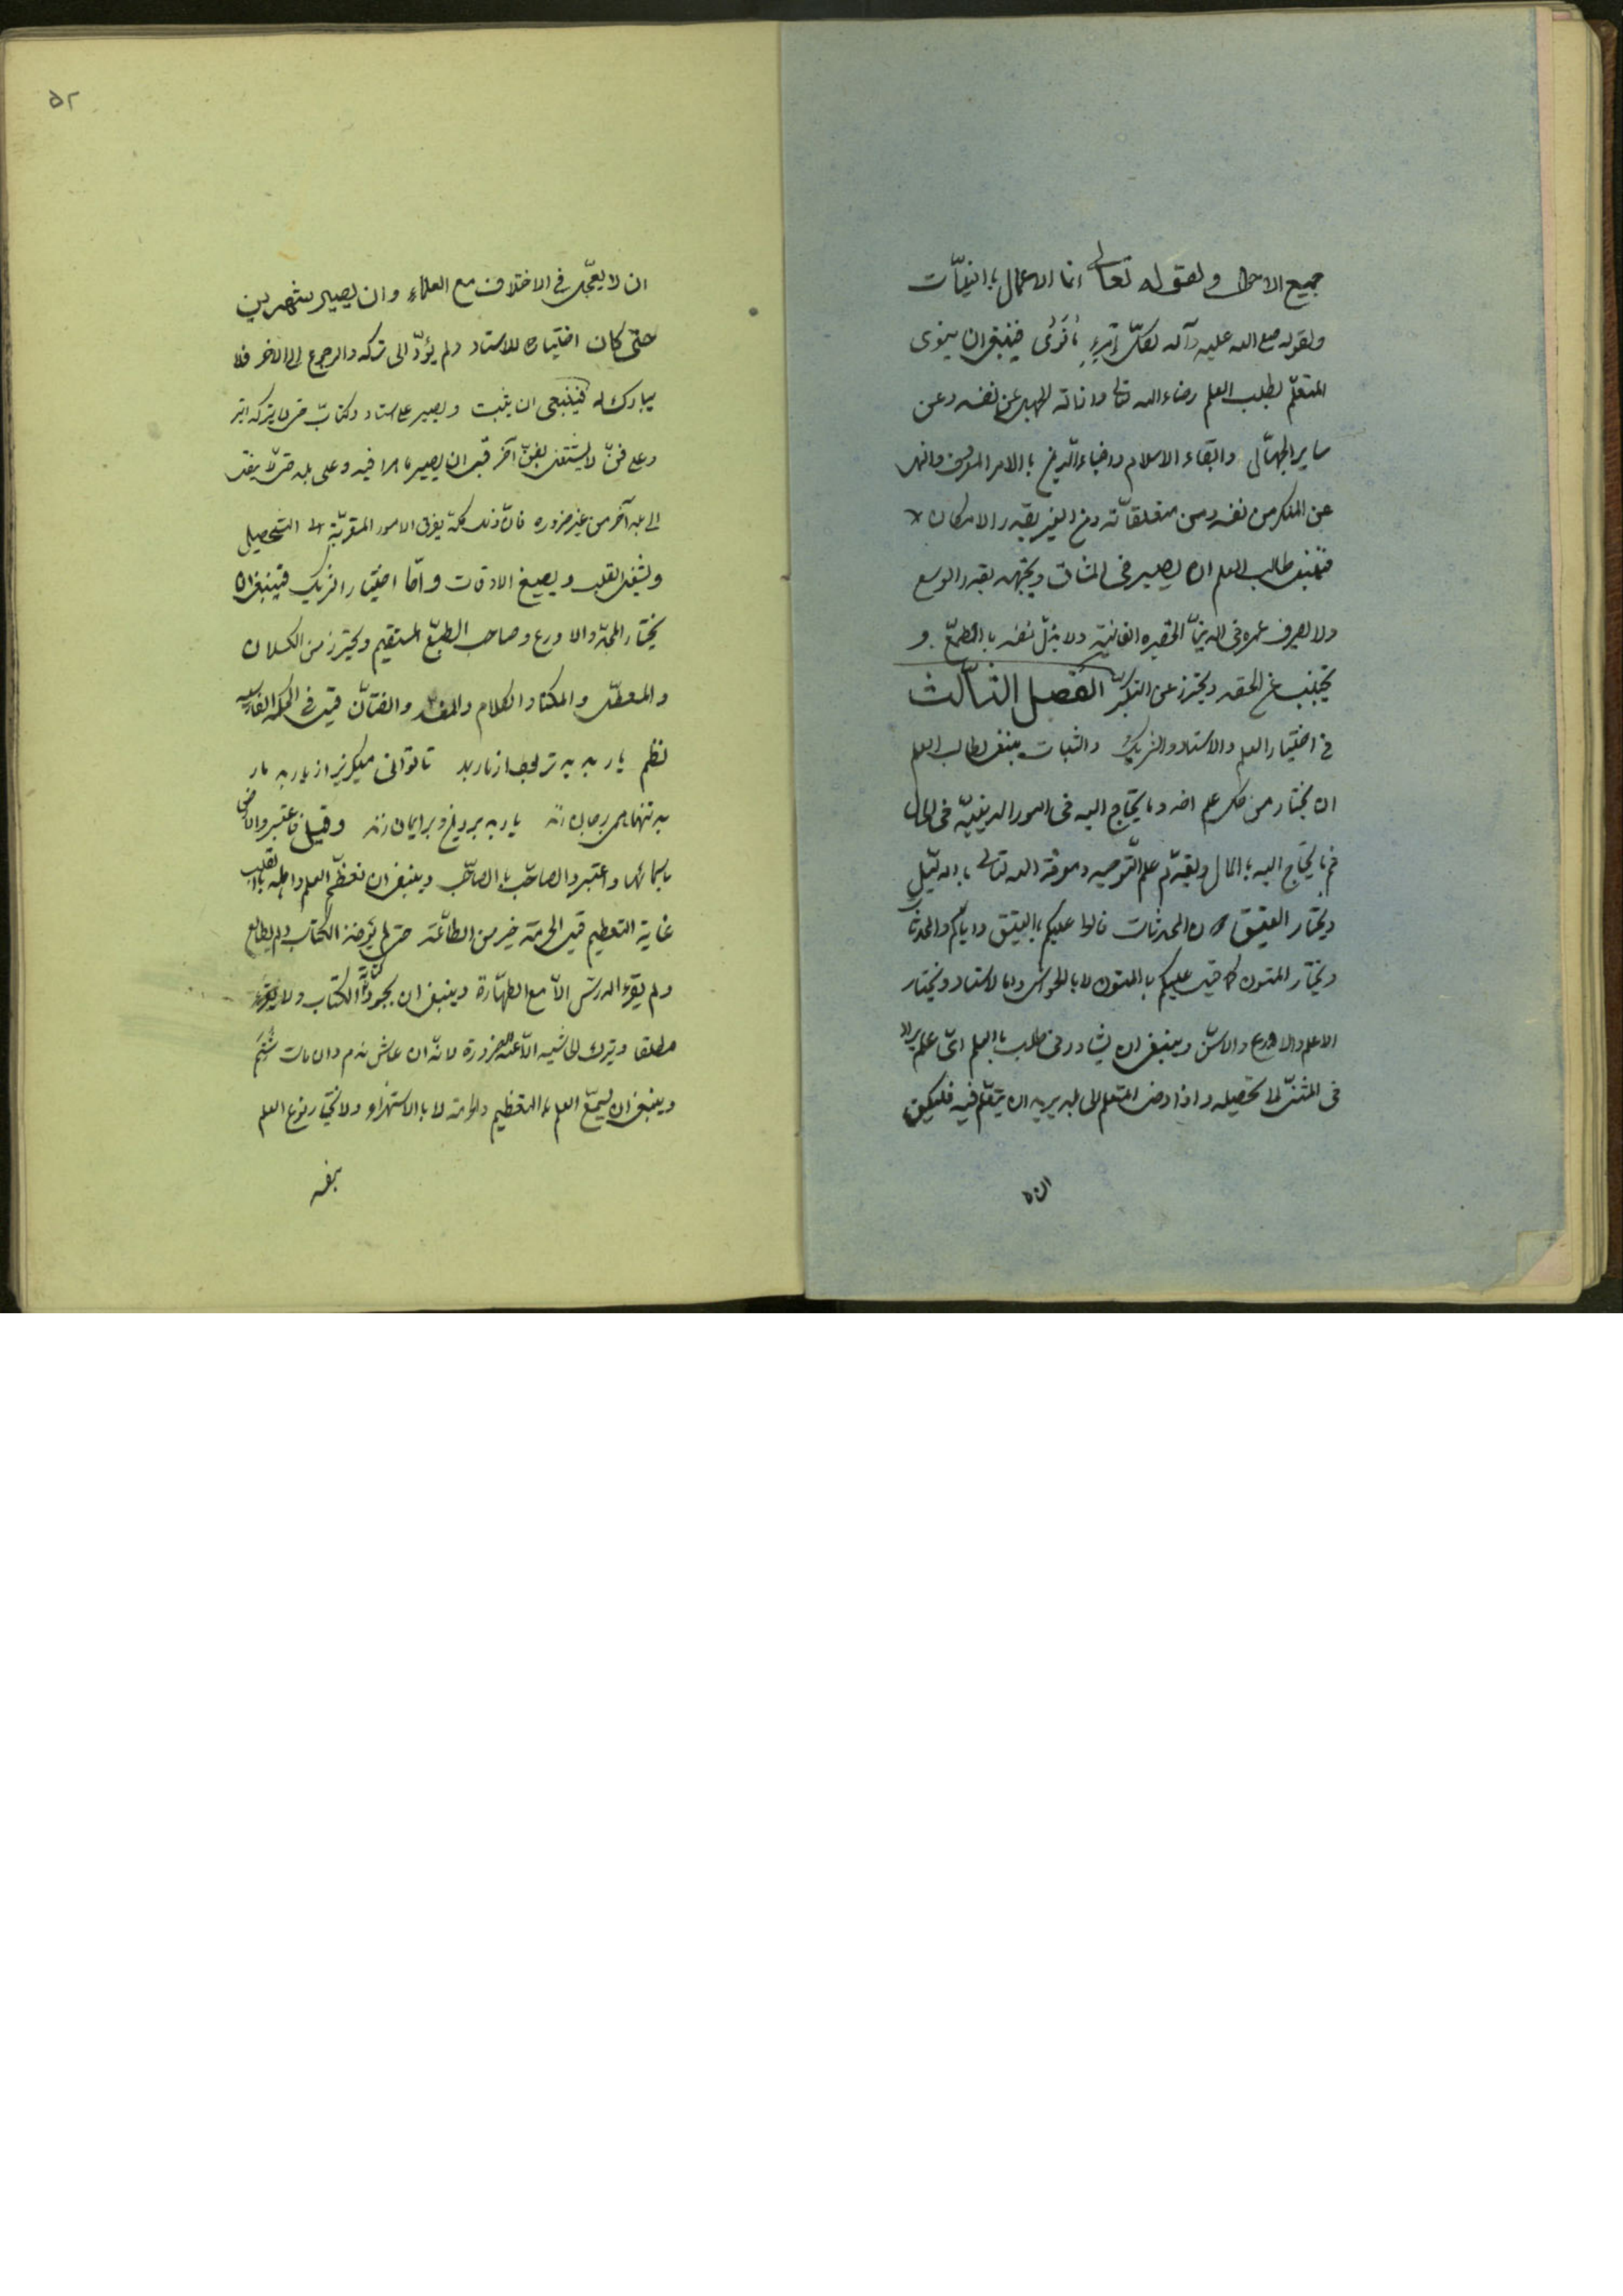 جميع الاحوال و لقوله تعالى انما الاعمال بالنيّات
ولقوله صلى الله عليه وآله لكلّ امرءٍ ما نَوىٰ فينبغى ان ينوى
المتعلّم بطلب العلم رضاء الله تعالى وازالة الجهل عن نفسه وعن
ساير الجهّال وابقاء الاسلام واحياء الدّين باالامر المعروف والنهى
عن المنكر من نفسه ومن متعلقاته ومن الغير بقدر الامكان
فينبغى طالب العلم ان يصبر فى المشاق ويجتهد بقدر الوسع
ولا يصرف عمره فى الدينّا الحقيره الفانية ولا يذلّ نفسه باالطمّع و
يجتنب عن الحقد ويحترز عن التكبّر الفصل الثاّلث
فى اختيار العلم والاستاد والشريك والثبات ينبغى لطالب العلم
ان يختار من كل علم احسنه وما يحتاج اليه فى امور الدينيّه فى الحال
ثم ما يحتاج اليه باالمال ويقدّم علم التوحيد ومعرفة الله تعالى باالدّليل
ويختار العتيق دون المحدثات قالوا عليكم باالعتيق واياّكم والمحدثات
ويختار المتون كما قيل عليكم باالمتون لا باالحواشى واما الاستاد ويختار
الاعلم والاورع والاسنّ وينبغى ان يشاور فى طلب باالعلم اىّ علم يراد
فى المشى الى تحصيله واذا دخل المتعلم الى بلد يريد ان يتعّلم فيه فليكن
ان لا
ان لا يعجّل فى الاختلاف مع العلماء وان يصبر شهرين
حتّى كان اختياره للاستاد ولم يؤدّ الى تركه والرجوع الى الاخر فلا
يبارك له فينبغى ان يثبت و يصبر على استاد وكتابّ حتى لا يتركه ابتر
وعلى فنّ لا يشتغل بفنّ آخر قبل ان يصير ماهرا فيه وعلى بلد حتى لا ينقل
الى بلد آخر من غير ضروره فانّ ذلك كلّه يفرق الامور المقربّة الى التحصيل
ويشغل القلب ويضيع الاوقات وامّا اختيار الشريك فينبغى ان
يختار المجدّ والاورع وصاحب الطبّع المستقيم ويحترز من الكسلان
والمعطّل والمكثار الكلام والمفسد والفتاّن قيل فى الحكمة الفارسيه
نظم يار بد بدتر بود از مار بد تا توانى ميگريز از يار بد مار
بد تنها همى بر جان زند يار بد بر دين و بر ايمان زند وقيل فاعتبروا الارض
باسمائها واعتبروا الصاحب باالصاحب وينبغى ان تعظّم العلم واهله باالقلب
غاية التعظيم قيل الحرمة خير من الطاّعة حتى لم يأخذ الكتاب ولم يطالع
ولم يقرء الدرس الاّ مع الطهّارة وينبغى ان يجودّ كتابة الكتاب ولا يقرمط
مطلقا ويترك الحاشيه الاّ عند الضرورة لانّه ان عاش ندم وان مات شُتِمَ
وينبغى ان يستمع العلم باالتعظيم والحرمة لا باالاستهزاء ولا يختار نوع العلم
بنفسه
۵۲